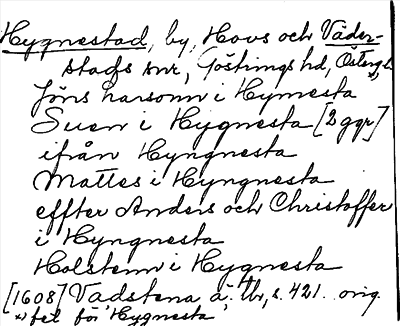 Hygnestad, by, Hovs och Väder-
stads snr, Göstrings hd, Östergl.
Jöns larsonn i Hymesta x)
Suen i Hygnesta [2 ggr]
ifrån Hyngnesta
Mattes i Hyngnesta
effter Anders och Christoffer
i Hyngnesta
Holstenn i Hygnesta
[1608] Vadstena ä. tb, s. 421. orig.
x) fel för 'Hygnesta'